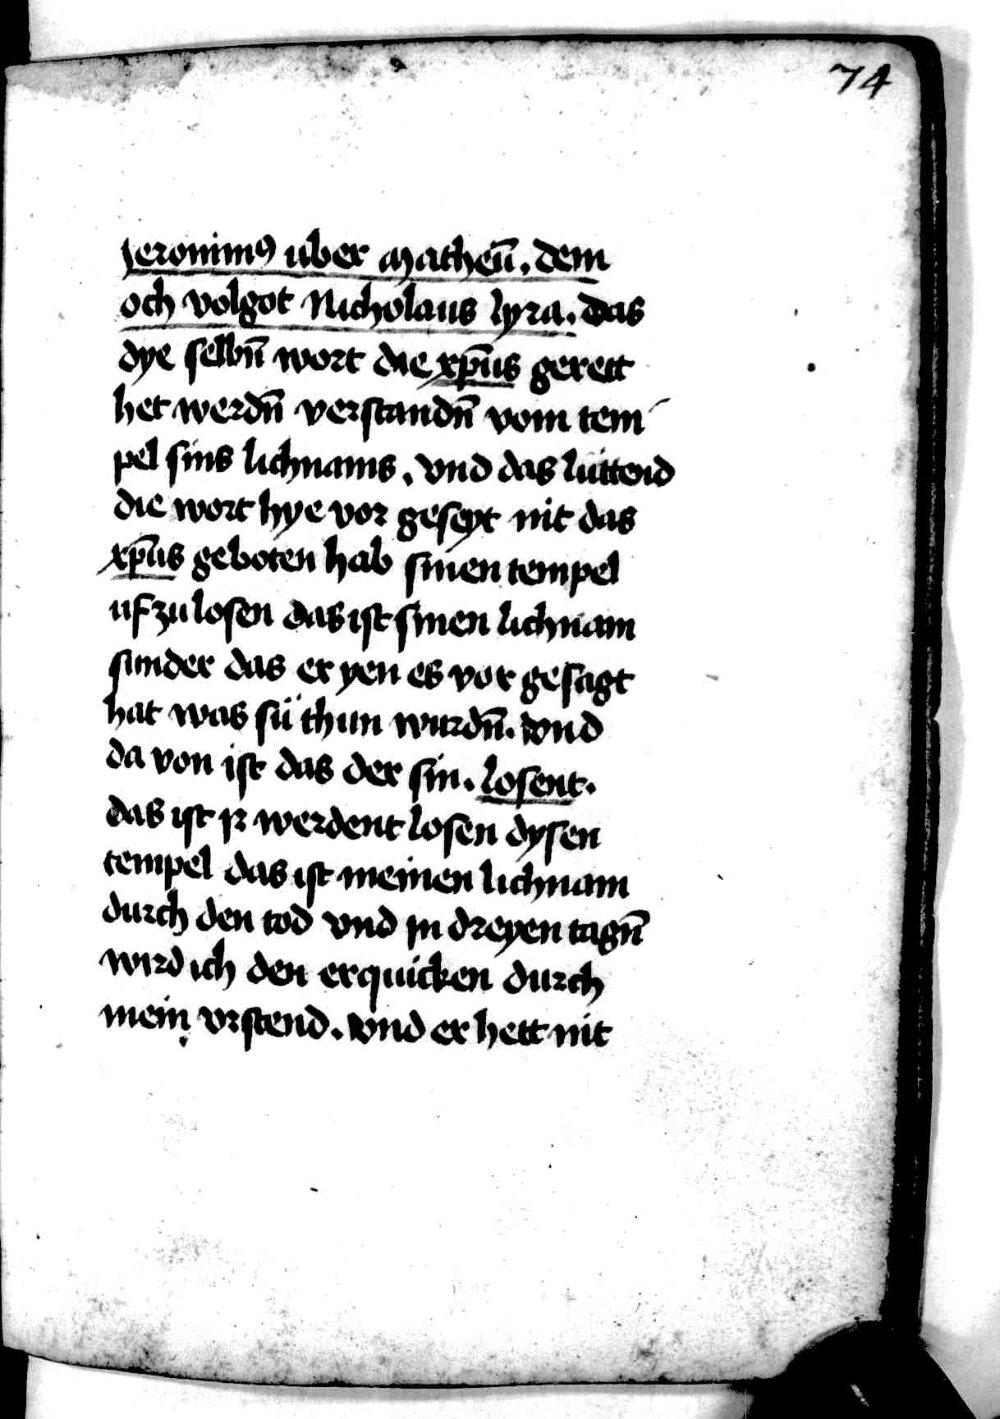 74
Jeronimꝯ uber Matheū. dem
och volgot Nicholaus lyra. das
dye selbn̄ wort die xp̄us gerett
het werdn̄ verstandn̄ vom tem
pel sins lichnams. vnd das lúttend
die wort hye vor geseyt nit das
xp̄us geboten hab sinen tempel
uf zu losen das ist sinen lichnam
sunder das er yen es vor gesagt
hat was sú thun wurdn̄. vnd
da von ist das der sin. losent.
das ist jr werdent losen dysen
tempel das ist meinen lichnam
durch den tod vnd jn dreyen tagn̄
wird ich den erquicken durch
mein vrstend. vnd er hett nit